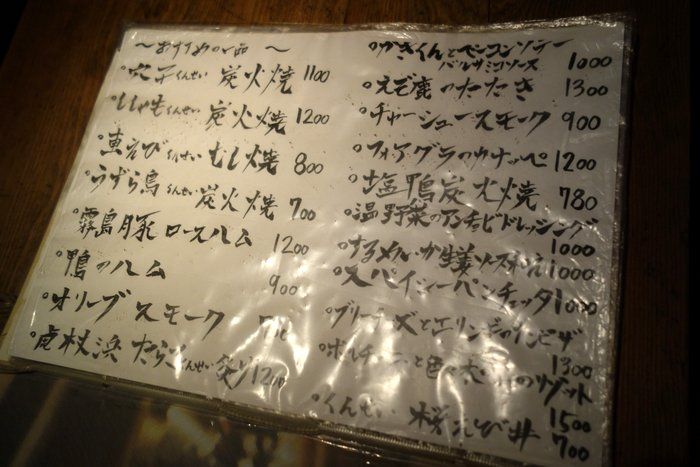 ～おすすめの一品～
くんせい 炭火焼 1100
ししゃもくんせい 炭火焼 1200
車えびくんせい むし焼 800
うずら鳥くんせい 炭火焼 700
霧島豚 ロースハム 1200
鴨のハム 900
オリーブスモーク
虎杖浜 たらこくんせい炙り 1200
かきくんとベーコンソテー
バルサミコソース 1000
えぞ鹿のたたき 1300
チャーシュースモーク 900
フォアグラのカナッペ 1200
塩鴨炭火焼 780
温野菜のアンチョビドレッシング
1000
するめいか生姜ソース 1000
スパイシーパンチェッタ 1000
ブリーチーズとエリンギのピザ
1300
ポルチーニと のリゾット
1500
くんせい 桜えび丼 700